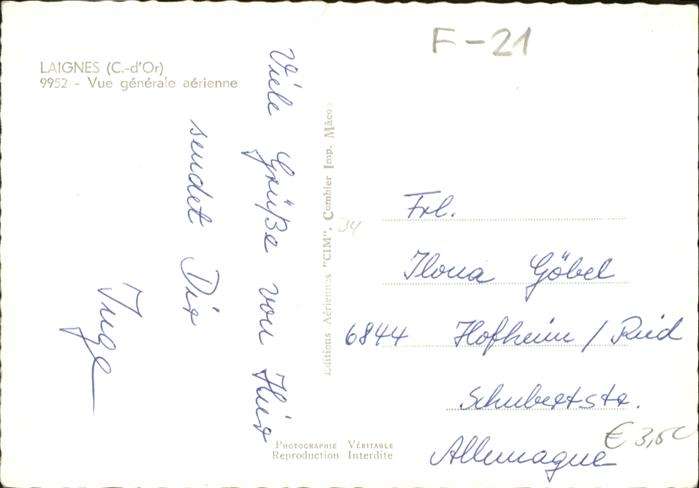 F-21
LAIGNES (C.-d'Or)
9952 - Vue générale aérienne
Viele Grüße von Hier
sendet Dir
Inge
Editions Aériennes "CIM", Combier Imp. Mâcon
34
Frl.
Ilona Göbel
6844 Hofheim / Ried
Schubertstr.
Allemagne
€ 3,50
PHOTOGRAPHIE VÉRITABLE
Reproduction Interdite